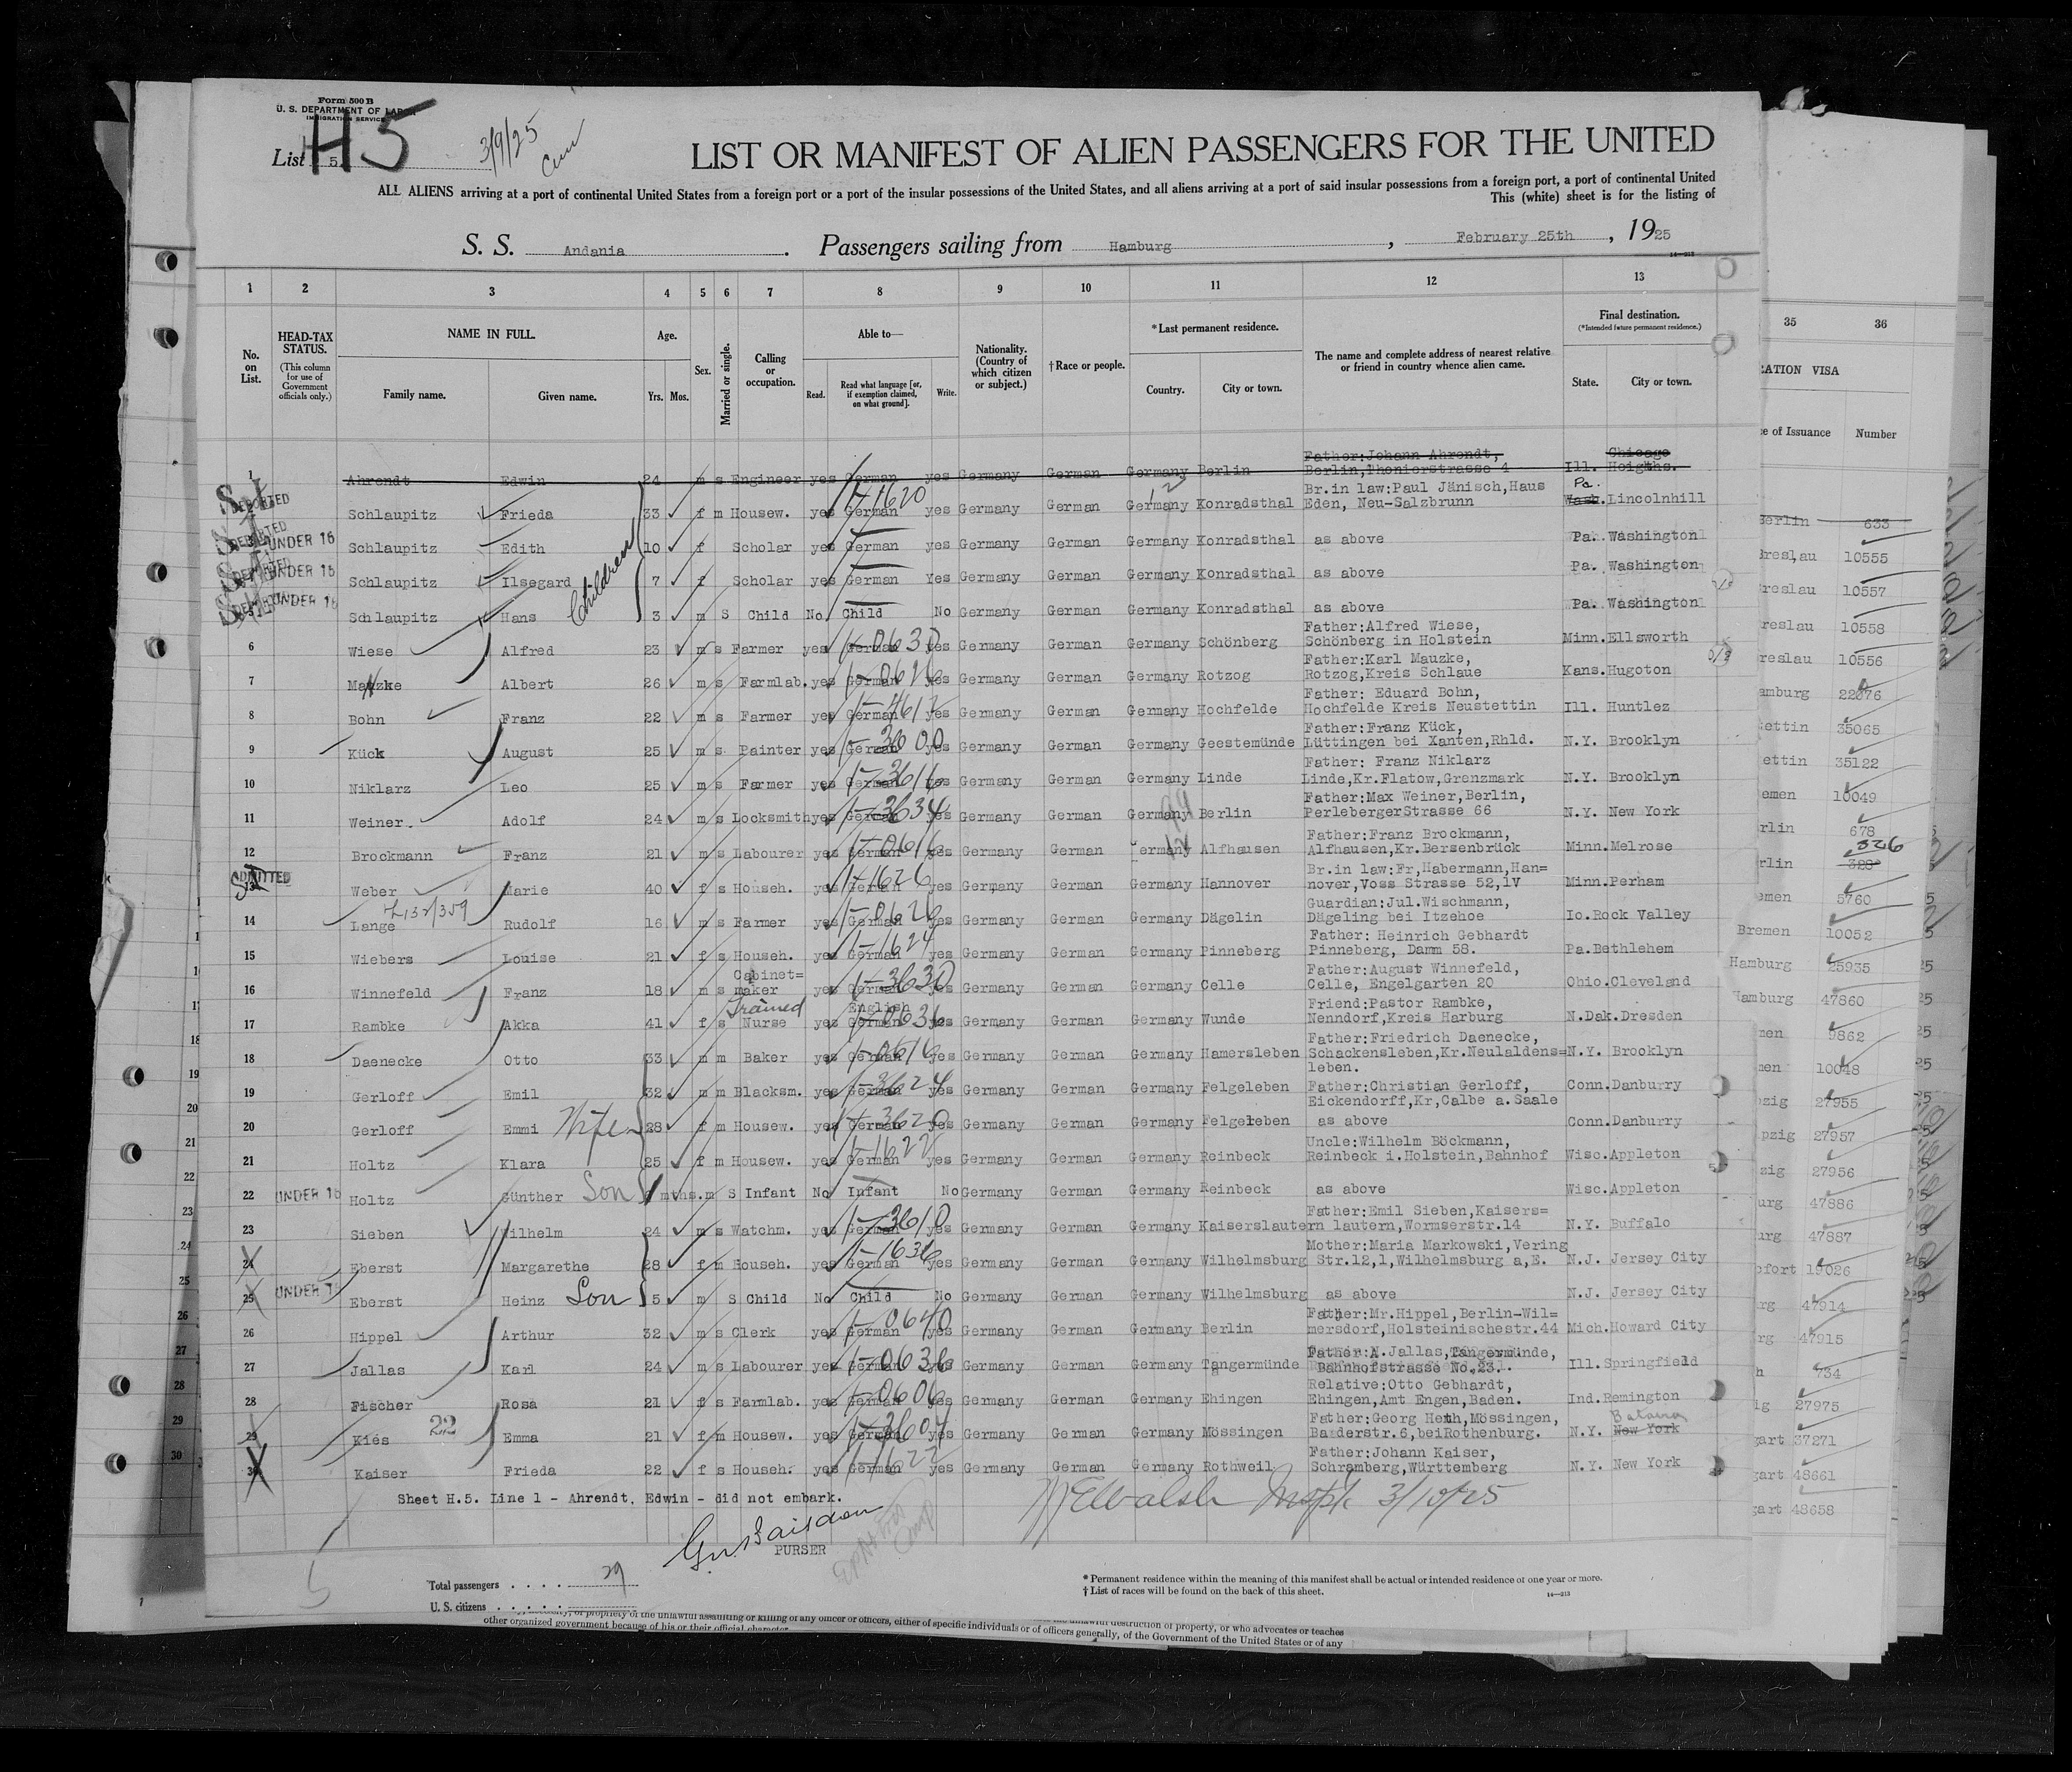 Form 500 B
U. S. DEPARTMENT OF LABOR
IMMIGRATION SERVICE
H5
List 5.
3/9/25
LIST OR MANIFEST OF ALIEN PASSENGERS FOR THE UNITED
ALL ALIENS arriving at a port of continental United States from a foreign port or a port of the insular possessions of the United States, and all aliens arriving at a port of said insular possessions from a foreign port, a port of continental United
This (white) sheet is for the listing of
S. S. Andania. Passengers sailing from Hamburg, February 25th, 1925
1 2 3 4 5 6 7 8 9 10 11 12 13
No. on List.
HEAD-TAX STATUS.
(This column for use of Government officials only.)
NAME IN FULL.
Family name. Given name.
Age.
Yrs. Mos.
Sex.
Married or single.
Calling or occupation.
Able to—
Read. Read what language [or, if exemption claimed, on what ground]. Write.
Nationality. (Country of which citizen or subject.)
†Race or people.
*Last permanent residence.
Country. City or town.
The name and complete address of nearest relative or friend in country whence alien came.
Final destination.
(*Intended future permanent residence.)
State. City or town.
35 36
VISA
of Issuance Number
1 Ahrendt Edwin 24 m s Engineer yes German yes Germany German Germany Berlin Father:Johann Ahrendt, Berlin,Thonierstrasse 4 Ill. Chicago Heigths.
DEPORTED Schlaupitz Frieda 33 f m Housew. yes German 1620 yes Germany German Germany Konradsthal Br.in law:Paul Jänisch,Haus Eden, Neu-Salzbrunn Wash. Pa. Lincolnhill
UNDER 16 Schlaupitz Edith 10 f Scholar yes German yes Germany German Germany Konradsthal as above Pa. Washington
UNDER 16 Schlaupitz Ilsegard 7 f Scholar yes German Yes Germany German Germany Konradsthal as above Pa. Washington
UNDER 16 Schlaupitz Hans Children 3 m S Child No Child No Germany German Germany Konradsthal as above Pa. Washington
6 Wiese Alfred 23 m s Farmer yes German yes Germany German Germany Schönberg Father:Alfred Wiese, Schönberg in Holstein Minn. Ellsworth
7 Mazke Albert 26 m s Farmlab. yes German yes Germany German Germany Rotzog Father:Karl Mauzke, Rotzog,Kreis Schlaue Kans. Hugoton
8 Bohn Franz 22 m s Farmer yes German yes Germany German Germany Hochfelde Father: Eduard Bohn, Hochfelde Kreis Neustettin Ill. Huntlez
9 Kück August 25 m s Painter yes German yes Germany German Germany Geestemünde Father:Franz Kück, Lüttingen bei Xanten,Rhld. N.Y. Brooklyn
10 Niklarz Leo 25 m s Farmer yes German yes Germany German Germany Linde Father: Franz Niklarz Linde,Kr.Flatow,Grenzmark N.Y. Brooklyn
11 Weiner. Adolf 24 m s Locksmith yes German yes Germany German Germany Berlin Father:Max Weiner,Berlin, PerlebergerStrasse 66 N.Y. New York
12 Brockmann Franz 21 m s Labourer yes German yes Germany German Germany Alfhausen Father:Franz Brockmann, Alfhausen,Kr.Bersenbrück Minn. Melrose
ADMITTED 13 Weber Marie 40 f s Househ. yes German 1626 yes Germany German Germany Hannover Br.in law:Fr,Habermann,Han= nover,Voss Strasse 52,1V Minn. Perham
14 Lange Rudolf 16 m s Farmer yes German yes Germany German Germany Dägelin Guardian:Jul.Wischmann, Dägeling bei Itzehoe Io. Rock Valley
15 Wiebers Louise 21 f s Househ. yes German 1624 yes Germany German Germany Pinneberg Father: Heinrich Gebhardt Pinneberg, Damm 58. Pa. Bethlehem
16 Winnefeld Franz 18 m s Cabinet= maker yes German 3630 yes Germany German Germany Celle Father:August Winnefeld, Celle, Engelgarten 20 Ohio. Cleveland
17 Rambke Akka 41 f s Trained Nurse yes English German yes Germany German Germany Wunde Friend:Pastor Rambke, Nenndorf,Kreis Harburg N.Dak. Dresden
18 Daenecke Otto 33 m m Baker yes German yes Germany German Germany Hamersleben Father:Friedrich Daenecke, Schackensleben,Kr.Neulaldens= leben. N.Y. Brooklyn
19 Gerloff Emil 32 m m Blacksm. yes German 3624 yes Germany German Germany Felgeleben Father:Christian Gerloff, Eickendorff,Kr,Calbe a.Saale Conn. Danburry
20 Gerloff Emmi Wife 28 f m Housew. yes German 3620 yes Germany German Germany Felgeleben as above Conn. Danburry
21 Holtz Klara 25 f m Housew. yes German 1622 yes Germany German Germany Reinbeck Uncle:Wilhelm Böckmann, Reinbeck i.Holstein,Bahnhof Wisc. Appleton
22 UNDER 16 Holtz Günther Son mths. m S Infant No Infant No Germany German Germany Reinbeck as above Wisc. Appleton
23 Sieben Wilhelm 24 m s Watchm. yes German 3610 yes Germany German Germany Kaiserslautern Father:Emil Sieben,Kaisers= lautern,Wormserstr.14 N.Y. Buffalo
24 Eberst Margarethe 28 f m Househ. yes German 1636 yes Germany German Germany Wilhelmsburg Mother:Maria Markowski,Vering Str.12,1,Wilhelmsburg a,E. N.J. Jersey City
25 UNDER 16 Eberst Heinz Son 5 m S Child No Child No Germany German Germany Wilhelmsburg as above N.J. Jersey City
26 Hippel Arthur 32 m s Clerk yes German 0640 yes Germany German Germany Berlin Father:Mr.Hippel,Berlin-Wil= mersdorf,Holsteinischestr.44 Mich. Howard City
27 Jallas Karl 24 m s Labourer yes German 0636 yes Germany German Germany Tangermünde Father:A.Jallas,Tangermünde, Bahnhofstrasse No.23. Ill. Springfield
28 Fischer Rosa 21 f s Farmlab. yes German 0606 yes Germany German Germany Ehingen Relative:Otto Gebhardt, Ehingen,Amt Engen,Baden. Ind. Remington
29 Kiés 22 Emma 21 f m Housew. yes German 3604 yes Germany German Germany Mössingen Father:Georg Heth,Mössingen, Baderstr.6,beiRothenburg. N.Y. New York Batavia
30 Kaiser Frieda 22 f s Househ. yes German 1622 yes Germany German Germany Rothweil Father:Johann Kaiser, Schramberg,Württemberg N.Y. New York
Berlin 633
Breslau 10555
Breslau 10557
Breslau 10558
Breslau 10556
Hamburg 22076
Stettin 35065
Stettin 35122
Bremen 10049
Berlin 678
Berlin 328 326
Bremen 5760
Bremen 10052
Hamburg 25935
Hamburg 47860
Bremen 9862
Bremen 10048
27955
27957
27956
47886
47887
19026
47914
47915
734
27975
37271
48661
48658
Sheet H.5. Line 1 - Ahrendt, Edwin - did not embark.
PURSER
3/10/25
Total passengers . . . . 29
U. S. citizens . . . . .
* Permanent residence within the meaning of this manifest shall be actual or intended residence of one year or more.
† List of races will be found on the back of this sheet.
14—213
or propriety of the unlawful assaulting or killing of any officer or officers, either of specific individuals or of officers generally, of the Government of the United States or of any
other organized government because of his or their official character
destruction of property, or who advocates or teaches